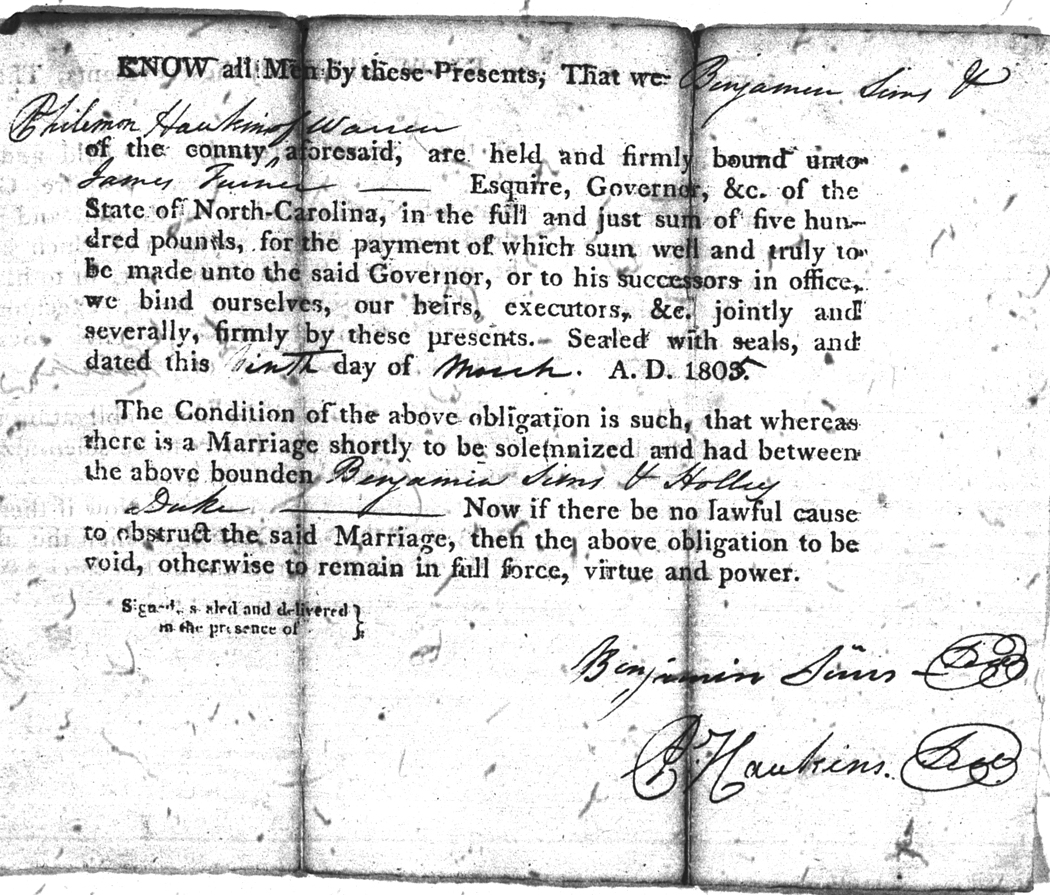 KNOW all Men by these Presents, That we Benjamin Sims &
Philemon Hawkins of Warren
of the county aforesaid, are held and firmly bound unto
James Turner —— Esquire, Governor, &c. of the
State of North-Carolina, in the full and just sum of five hun-
dred pounds, for the payment of which sum well and truly to
be made unto the said Governor, or to his successors in office,
we bind ourselves, our heirs, executors, &c. jointly and
severally, firmly by these presents. Sealed with seals, and
dated this day of March. A. D. 1805.
The Condition of the above obligation is such, that whereas
there is a Marriage shortly to be solemnized and had between
the above bounden Benjamin Sims & Holley
Duke —— Now if there be no lawful cause
to obstruct the said Marriage, then the above obligation to be
void, otherwise to remain in full force, virtue and power.
Signed, sealed and delivered }
in the presence of
Benjamin Sims - Seal
P. Hawkins. Seal